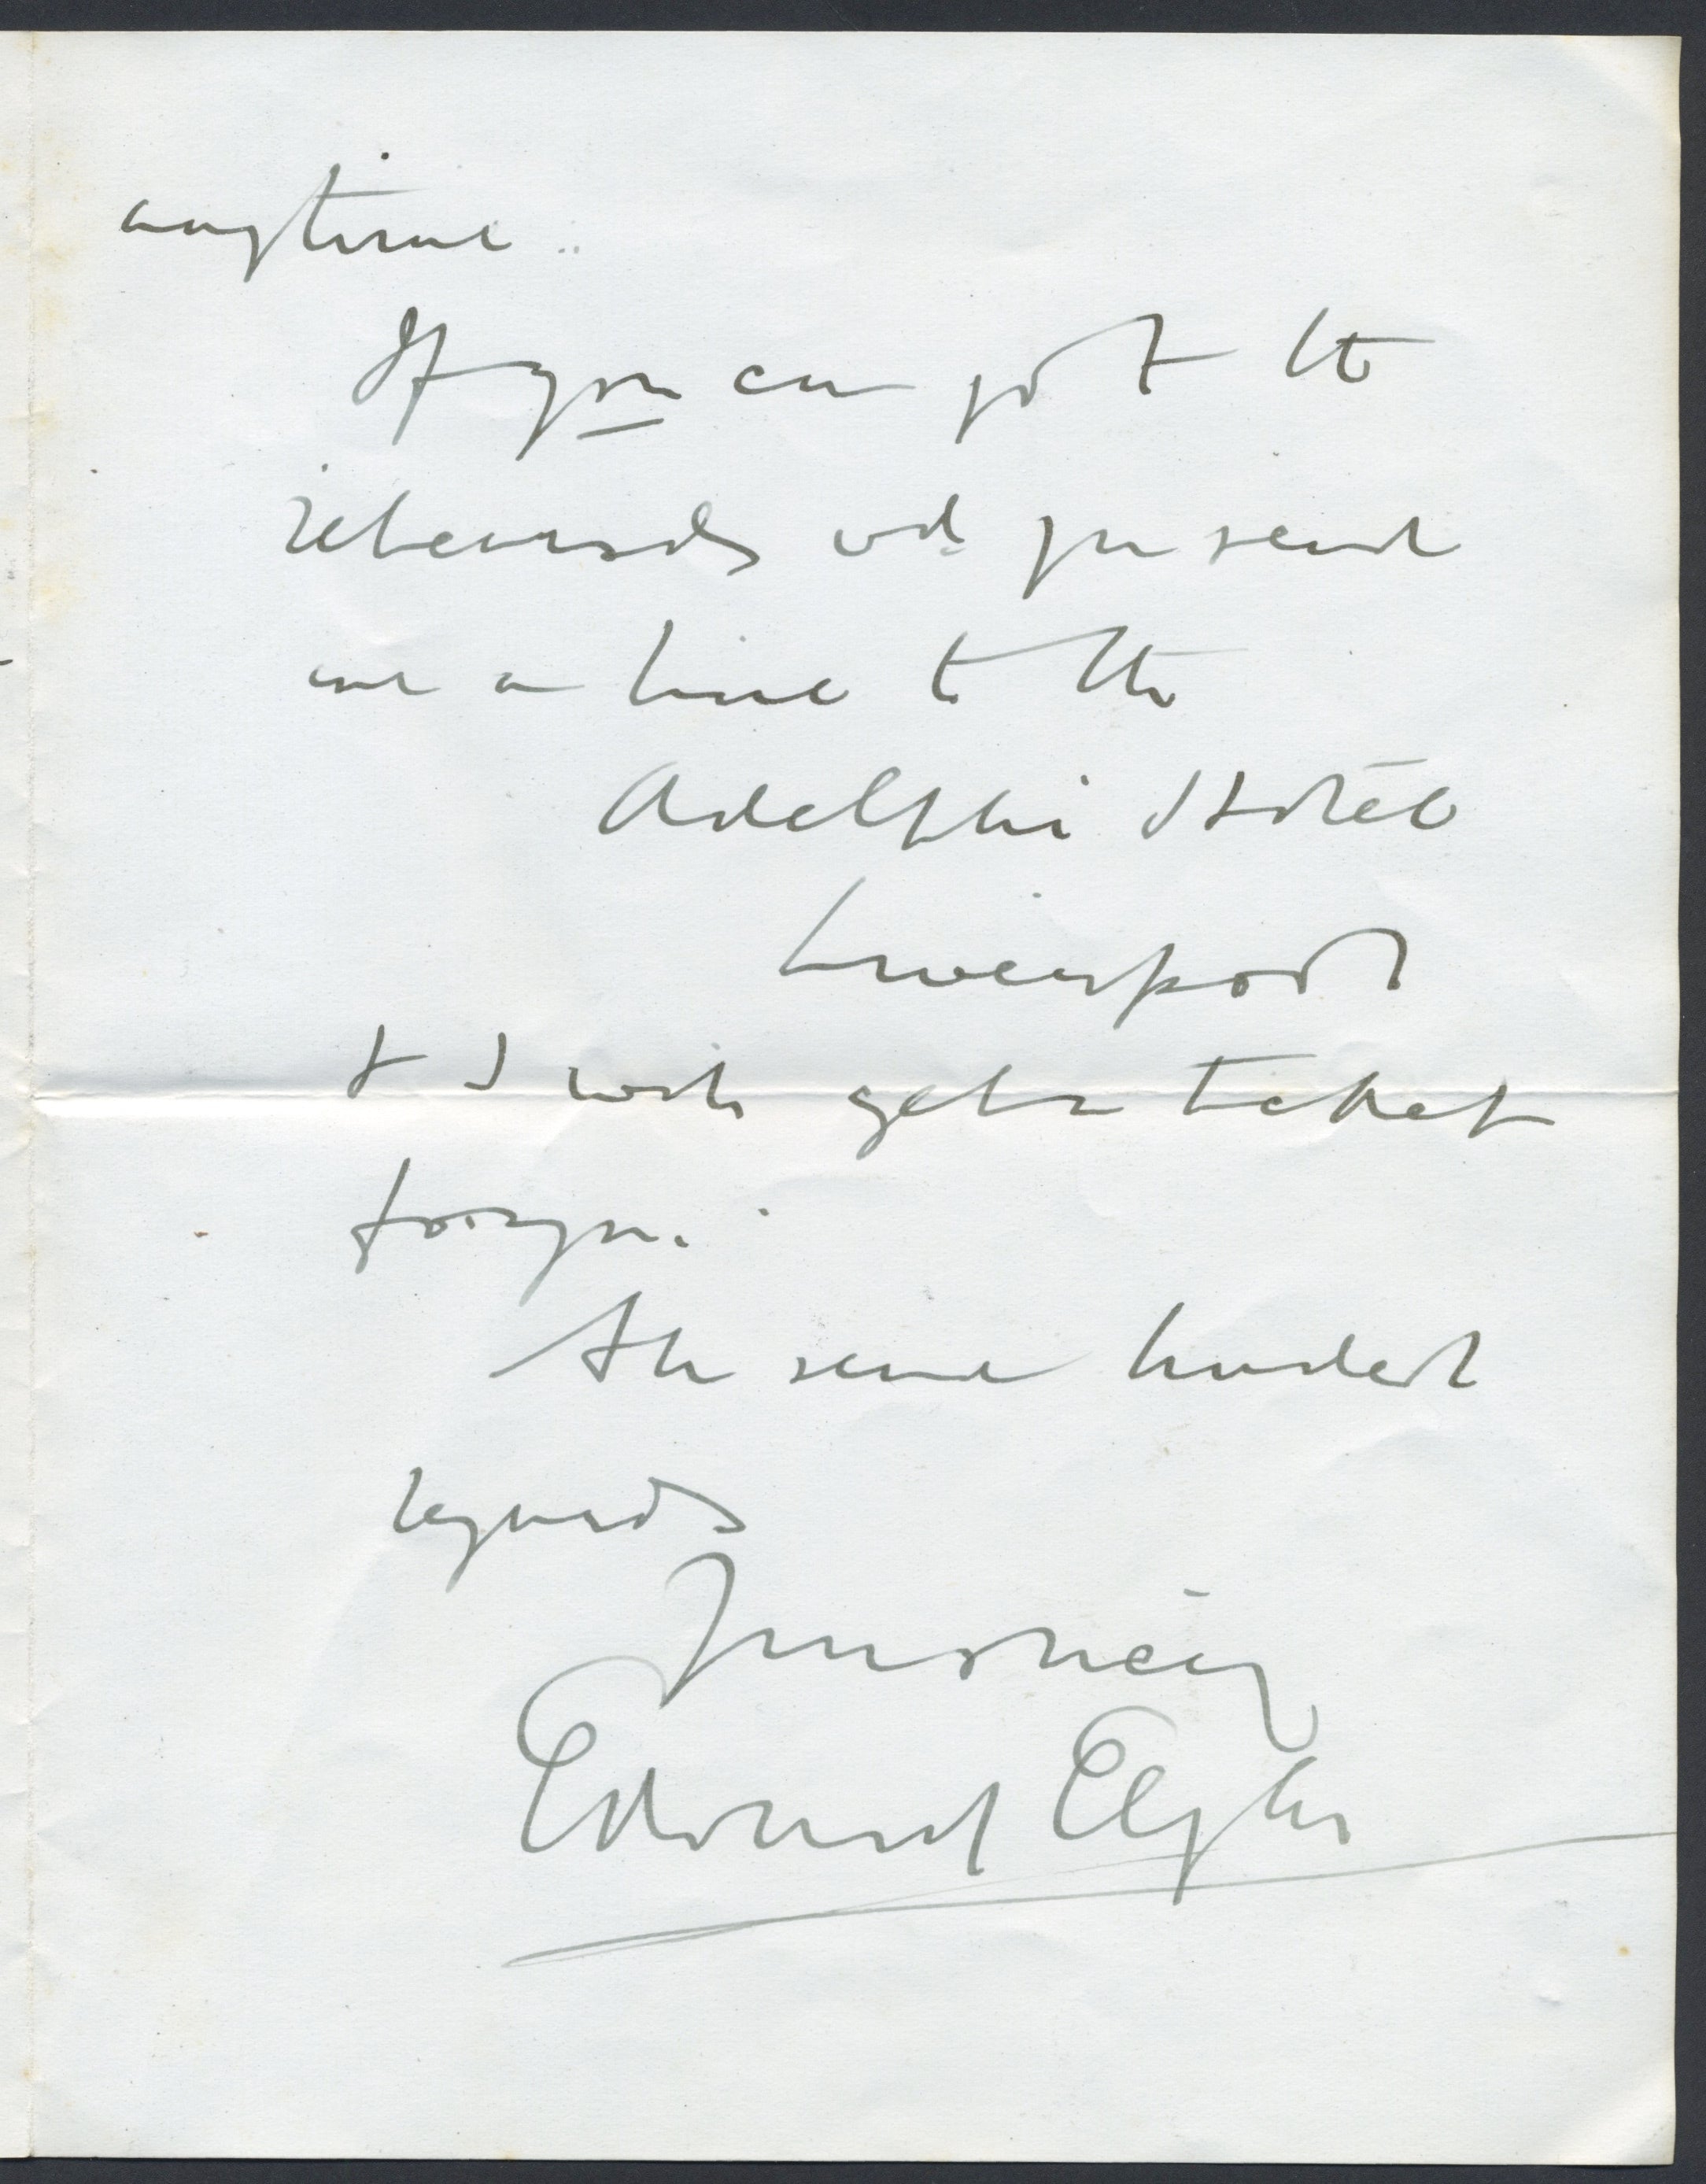 anytime.
If you can get to the
rehearsals wd. you send
me a line to the
Adelphi Hotel
Liverpool
& I will get a ticket
for you.
kindest
regards
Yrs sincy
Edward Elgar